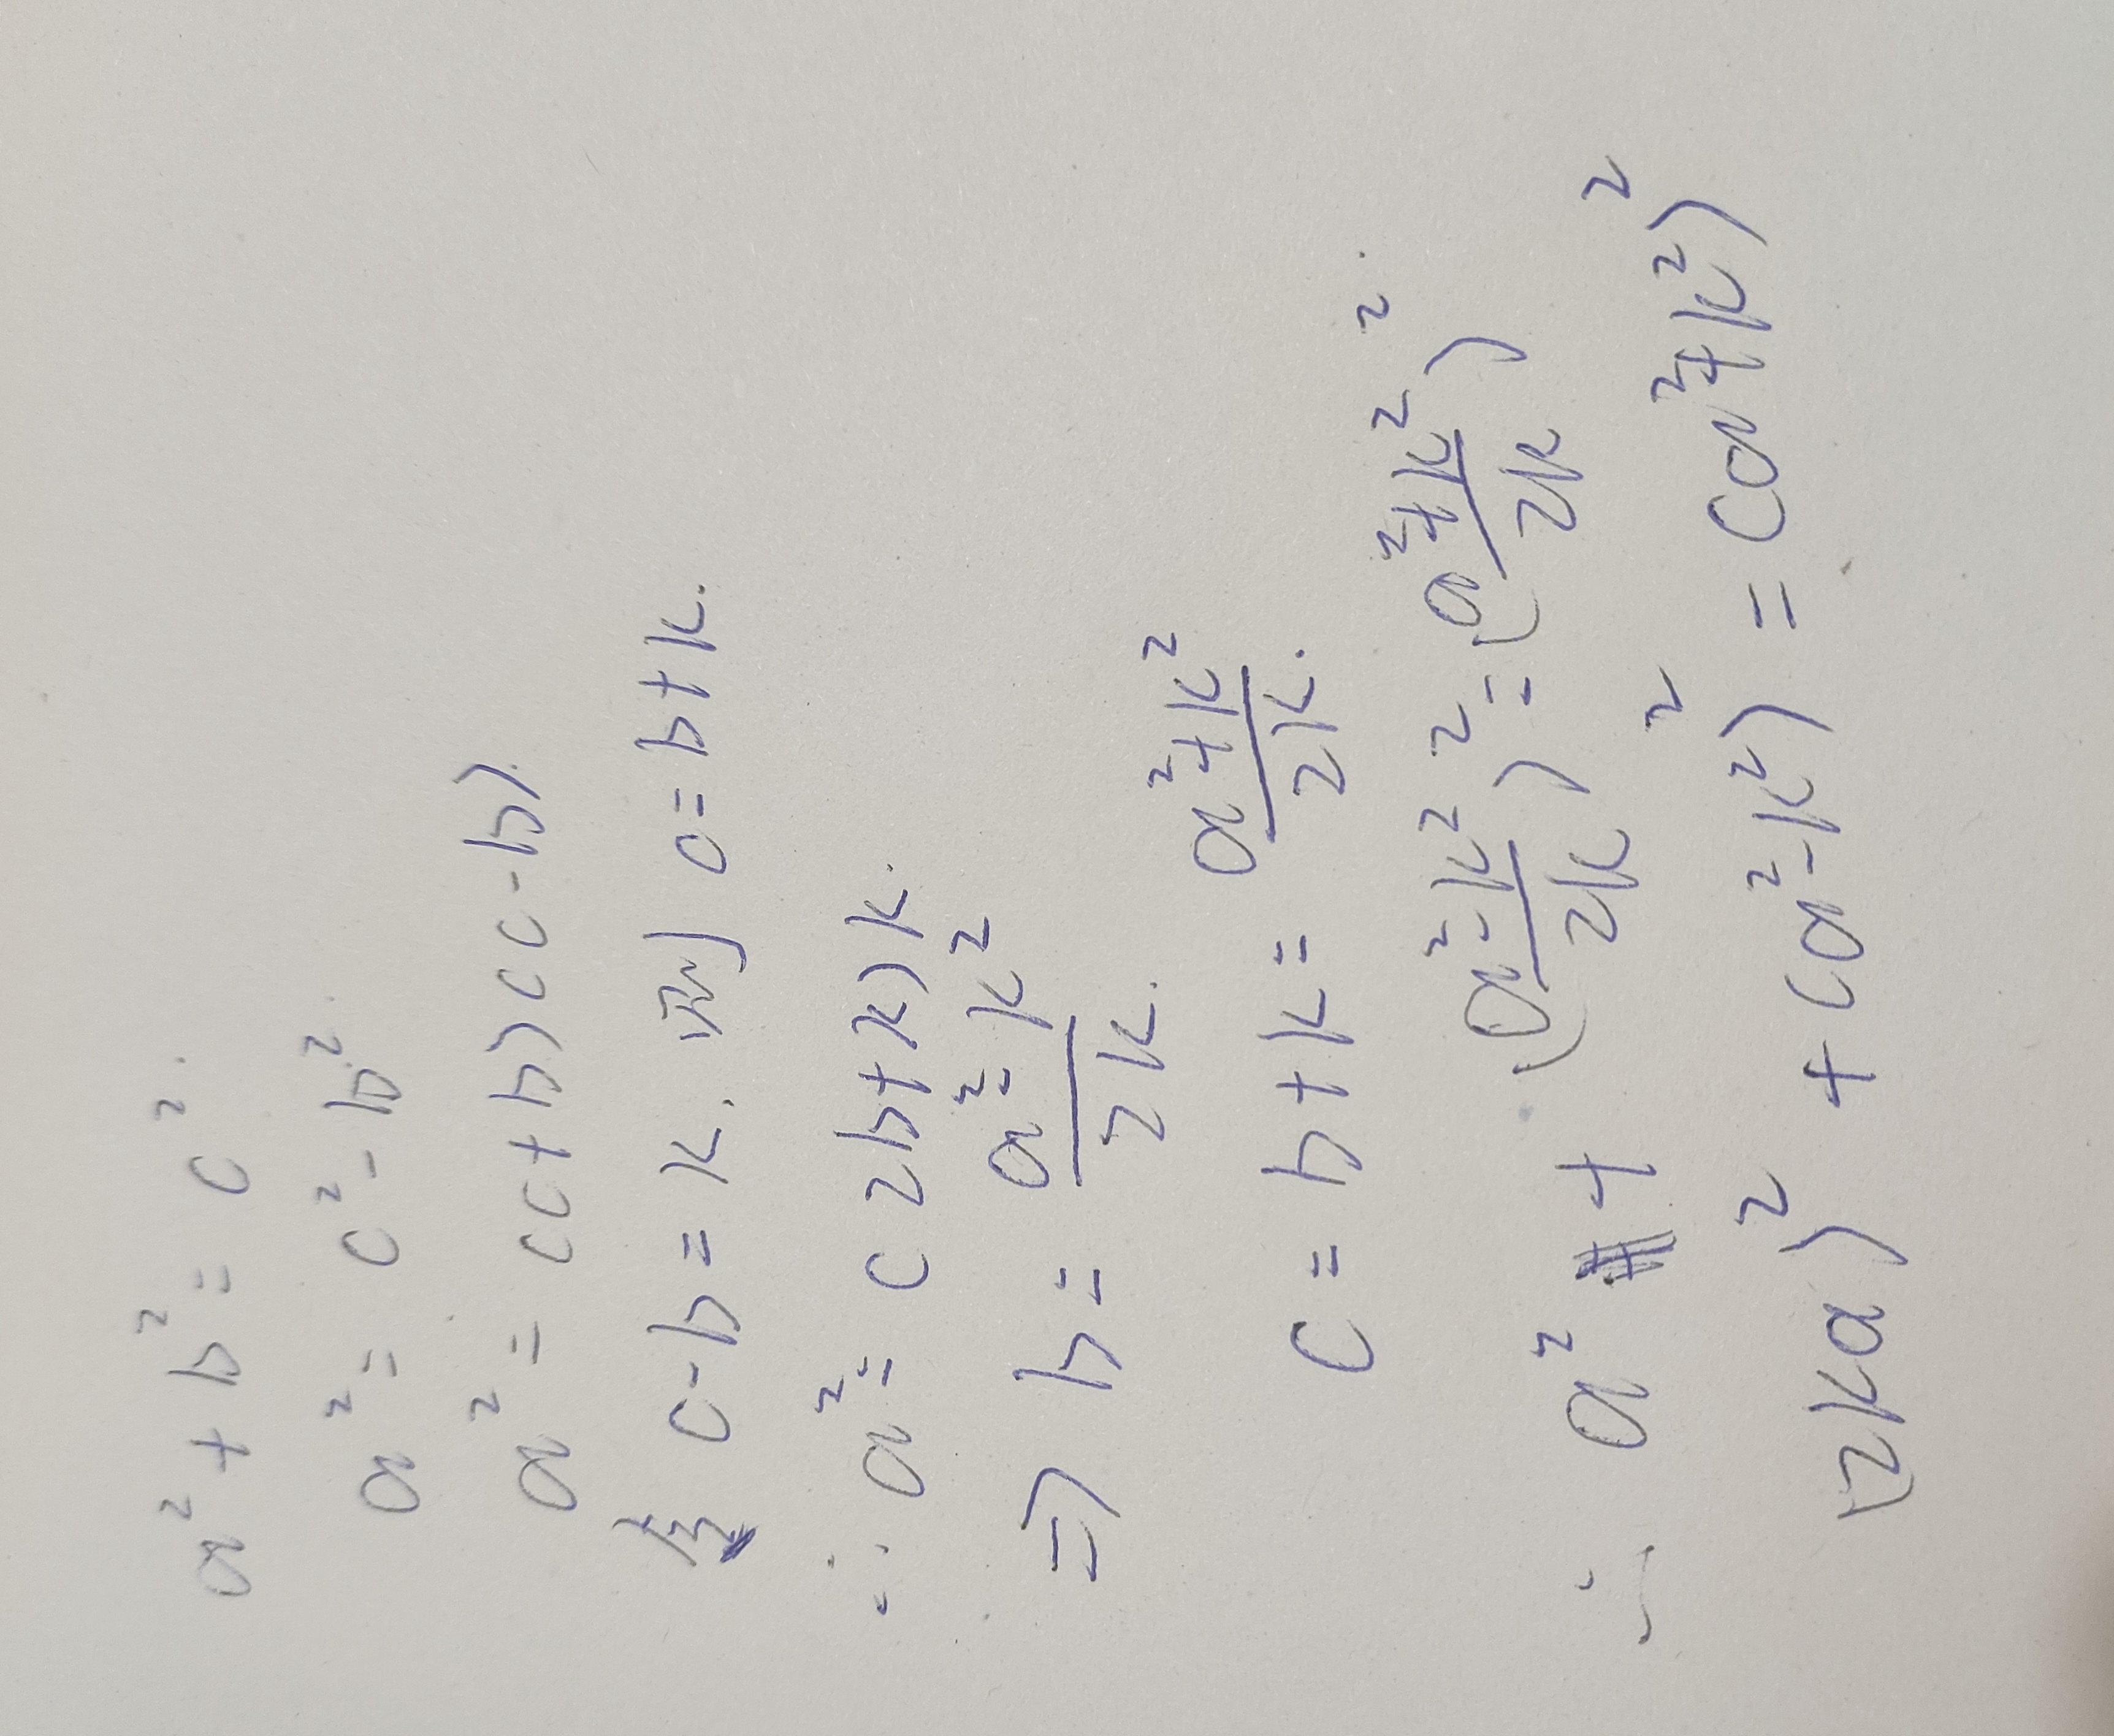 a² + b² = c².
a² = c² - b².
a² = (c+b)(c-b).
令 c-b = k, 则 c = b+k.
∴ a² = (2b+k)k.
⇒ b = (a²-k²)/2k.
c = b+k = (a²+k²)/2k.
∴ a² + ((a²-k²)/2k)² = ((a²+k²)/2k)².
(2ka)² + (a²-k²)² = (a²+k²)²